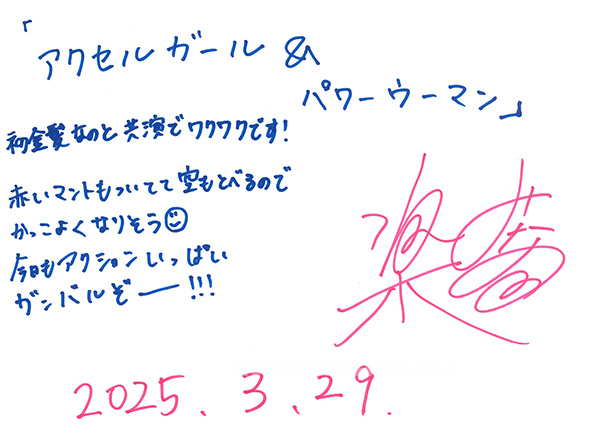 「アクセルガール&
パワーウーマン」
初金髪なのと共演でワクワクです!
赤いマントもついてて空もとべるので
かっこよくなりそう☺
今日もアクションいっぱい
ガンバルぞー!!!
2025.3.29.